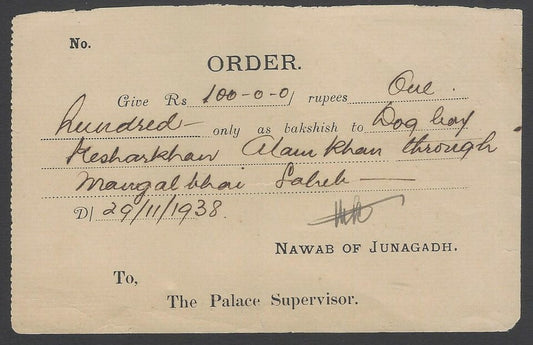 No.
ORDER.
Give Rs 100-0-0/ rupees One
hundred- only as bakshish to Dog boy
Kesharkhan Alamkhan through
Mangalbhai Saheb —
D/ 29/11/1938.
NAWAB OF JUNAGADH.
To,
The Palace Supervisor.